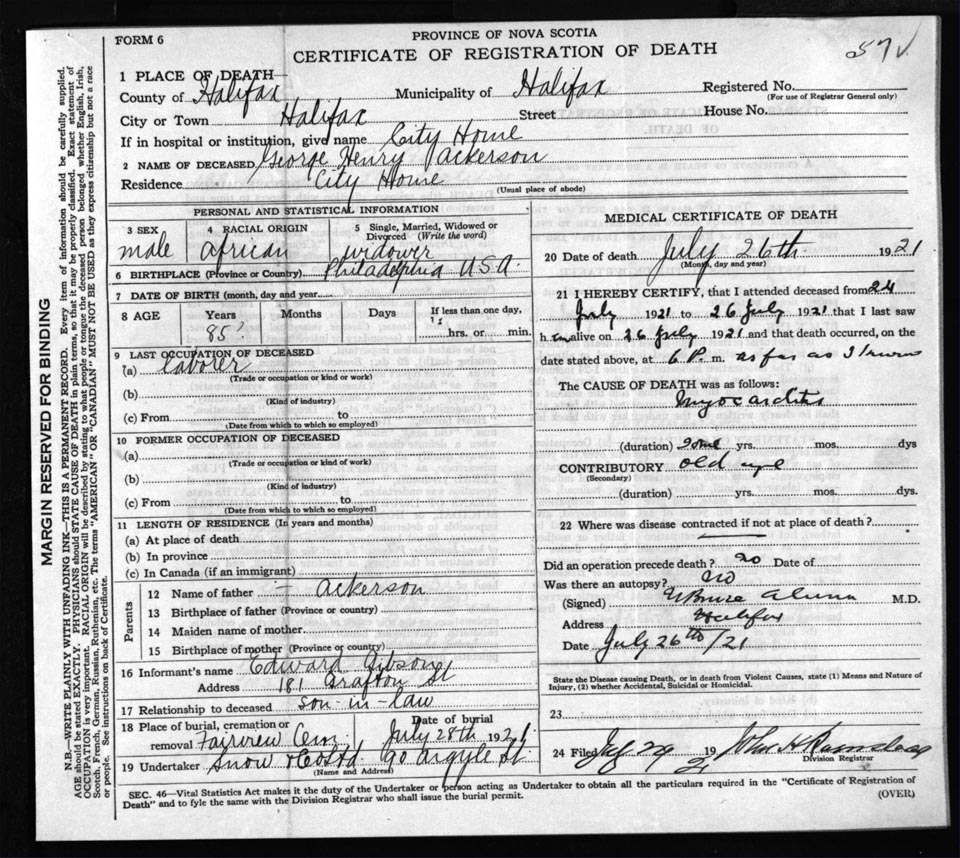 FORM 6
PROVINCE OF NOVA SCOTIA
CERTIFICATE OF REGISTRATION OF DEATH
57
1 PLACE OF DEATH—
County of Halifax Municipality of Halifax Registered No.
(For use of Registrar General only)
City or Town Halifax Street House No.
If in hospital or institution, give name City Home
2 NAME OF DECEASED George Henry Ackerson
Residence City Home
(Usual place of abode)
PERSONAL AND STATISTICAL INFORMATION
3 SEX 4 RACIAL ORIGIN 5 Single, Married, Widowed or Divorced (Write the word)
male african widower
6 BIRTHPLACE (Province or Country) Philadelphia U.S.A.
7 DATE OF BIRTH (month, day and year)
8 AGE Years Months Days If less than one day,
85? hrs. or min.
9 LAST OCCUPATION OF DECEASED
(a) laborer
(Trade or occupation or kind of work)
(b)
(Kind of industry)
(c) From to
(Date from which to which so employed)
10 FORMER OCCUPATION OF DECEASED
(a)
(Trade or occupation or kind of work)
(b)
(Kind of industry)
(c) From to
(Date from which to which so employed)
11 LENGTH OF RESIDENCE (In years and months)
(a) At place of death
(b) In province
(c) In Canada (if an immigrant)
Parents
12 Name of father — Ackerson
13 Birthplace of father (Province or country)
14 Maiden name of mother
15 Birthplace of mother (Province or country)
16 Informant's name Edward Gibson
Address 181 Grafton St
17 Relationship to deceased son-in-law
18 Place of burial, cremation or removal Fairview Cem Date of burial July 28th 1921
19 Undertaker Snow & Co Ltd 90 Argyle St
(Name and Address)
MEDICAL CERTIFICATE OF DEATH
20 Date of death July 26th 1921
(Month, day and year)
21 I HEREBY CERTIFY, that I attended deceased from 24
July 1921 to 26 July 1921 that I last saw
h im alive on 26 July 1921 and that death occurred, on the
date stated above, at 6 P. m. as far as I know
The CAUSE OF DEATH was as follows:
Myocarditis
(duration) some yrs. mos. dys
CONTRIBUTORY old age
(Secondary)
(duration) yrs. mos. dys.
22 Where was disease contracted if not at place of death?
Did an operation precede death? no Date of
Was there an autopsy? no
(Signed) M.D.
Address Halifax
Date July 26th/21
State the Disease causing Death, or in death from Violent Causes, state (1) Means and Nature of
Injury, (2) whether Accidental, Suicidal or Homicidal.
23
24 Filed 29 19 21 John H
Division Registrar
SEC. 46—Vital Statistics Act makes it the duty of the Undertaker or person acting as Undertaker to obtain all the particulars required in the "Certificate of Registration of
Death" and to fyle the same with the Division Registrar who shall issue the burial permit.
(OVER)
MARGIN RESERVED FOR BINDING
N.B.—WRITE PLAINLY WITH UNFADING INK—THIS IS A PERMANENT RECORD. Every item of information should be carefully supplied.
AGE should be stated EXACTLY. PHYSICIANS should STATE CAUSE OF DEATH in plain terms, so that it may be properly classified. Exact statement of
OCCUPATION is very important. RACIAL ORIGIN will be described by stating to what people or tongue the deceased person belonged whether English, Irish,
Scotch, French, German, Russian, Ruthenian, etc. The terms "AMERICAN" OR "CANADIAN" MUST NOT BE USED as they express citizenship but not a race
or people. See instructions on back of Certificate.